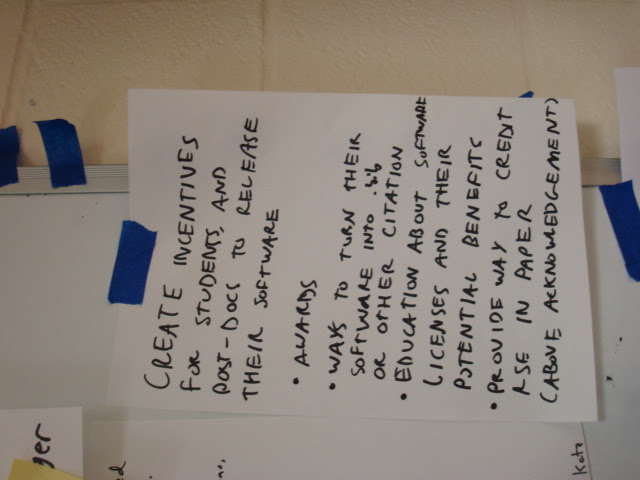 ger
ed
CREATE INCENTIVES
FOR STUDENTS, AND
POST-DOCS TO RELEASE
THEIR SOFTWARE
• AWARDS
• WAYS TO TURN THEIR
SOFTWARE INTO .bib
OR OTHER CITATION
• EDUCATION ABOUT SOFTWARE
LICENSES AND THEIR
POTENTIAL BENEFITS
• PROVIDE WAY TO CREDIT
USE IN PAPER
(ABOVE ACKNOWLEDGEMENT)
Katz